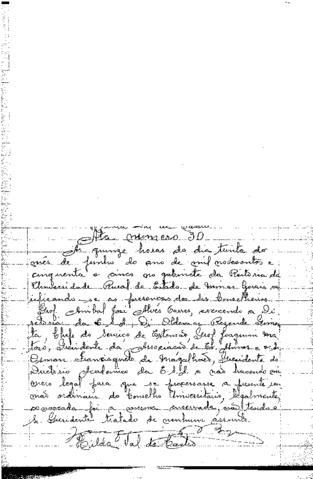 Ata numero 30
As quinze horas do dia trinta do
mês de junho do ano de mil novecentos e
cinquenta e cinco no gabinete da Reitoria da
Universidade Rural do Estado de Minas Gerais
se as presenças dos Conselheiros
Prof. Anibal José Alves Torres, exercendo a Di
retoria da E.S.A., Dr. Oldemar Rezende
Chefe do Serviço de Extensão, Prof. Joaquim Ma
Presidente da Associação de Ex-Alunos e
Osmar de Magalhães, Presidente do
Diretório Acadêmico da E.S.A e não havendo nú
mero legal para que se processasse a presente reu
nião ordinaria do Conselho Universitário, legalmente
convocada foi a mesma encerrada, não tendo o
s. Presidente tratado de nenhum assunto.
Hilda Val de Castro